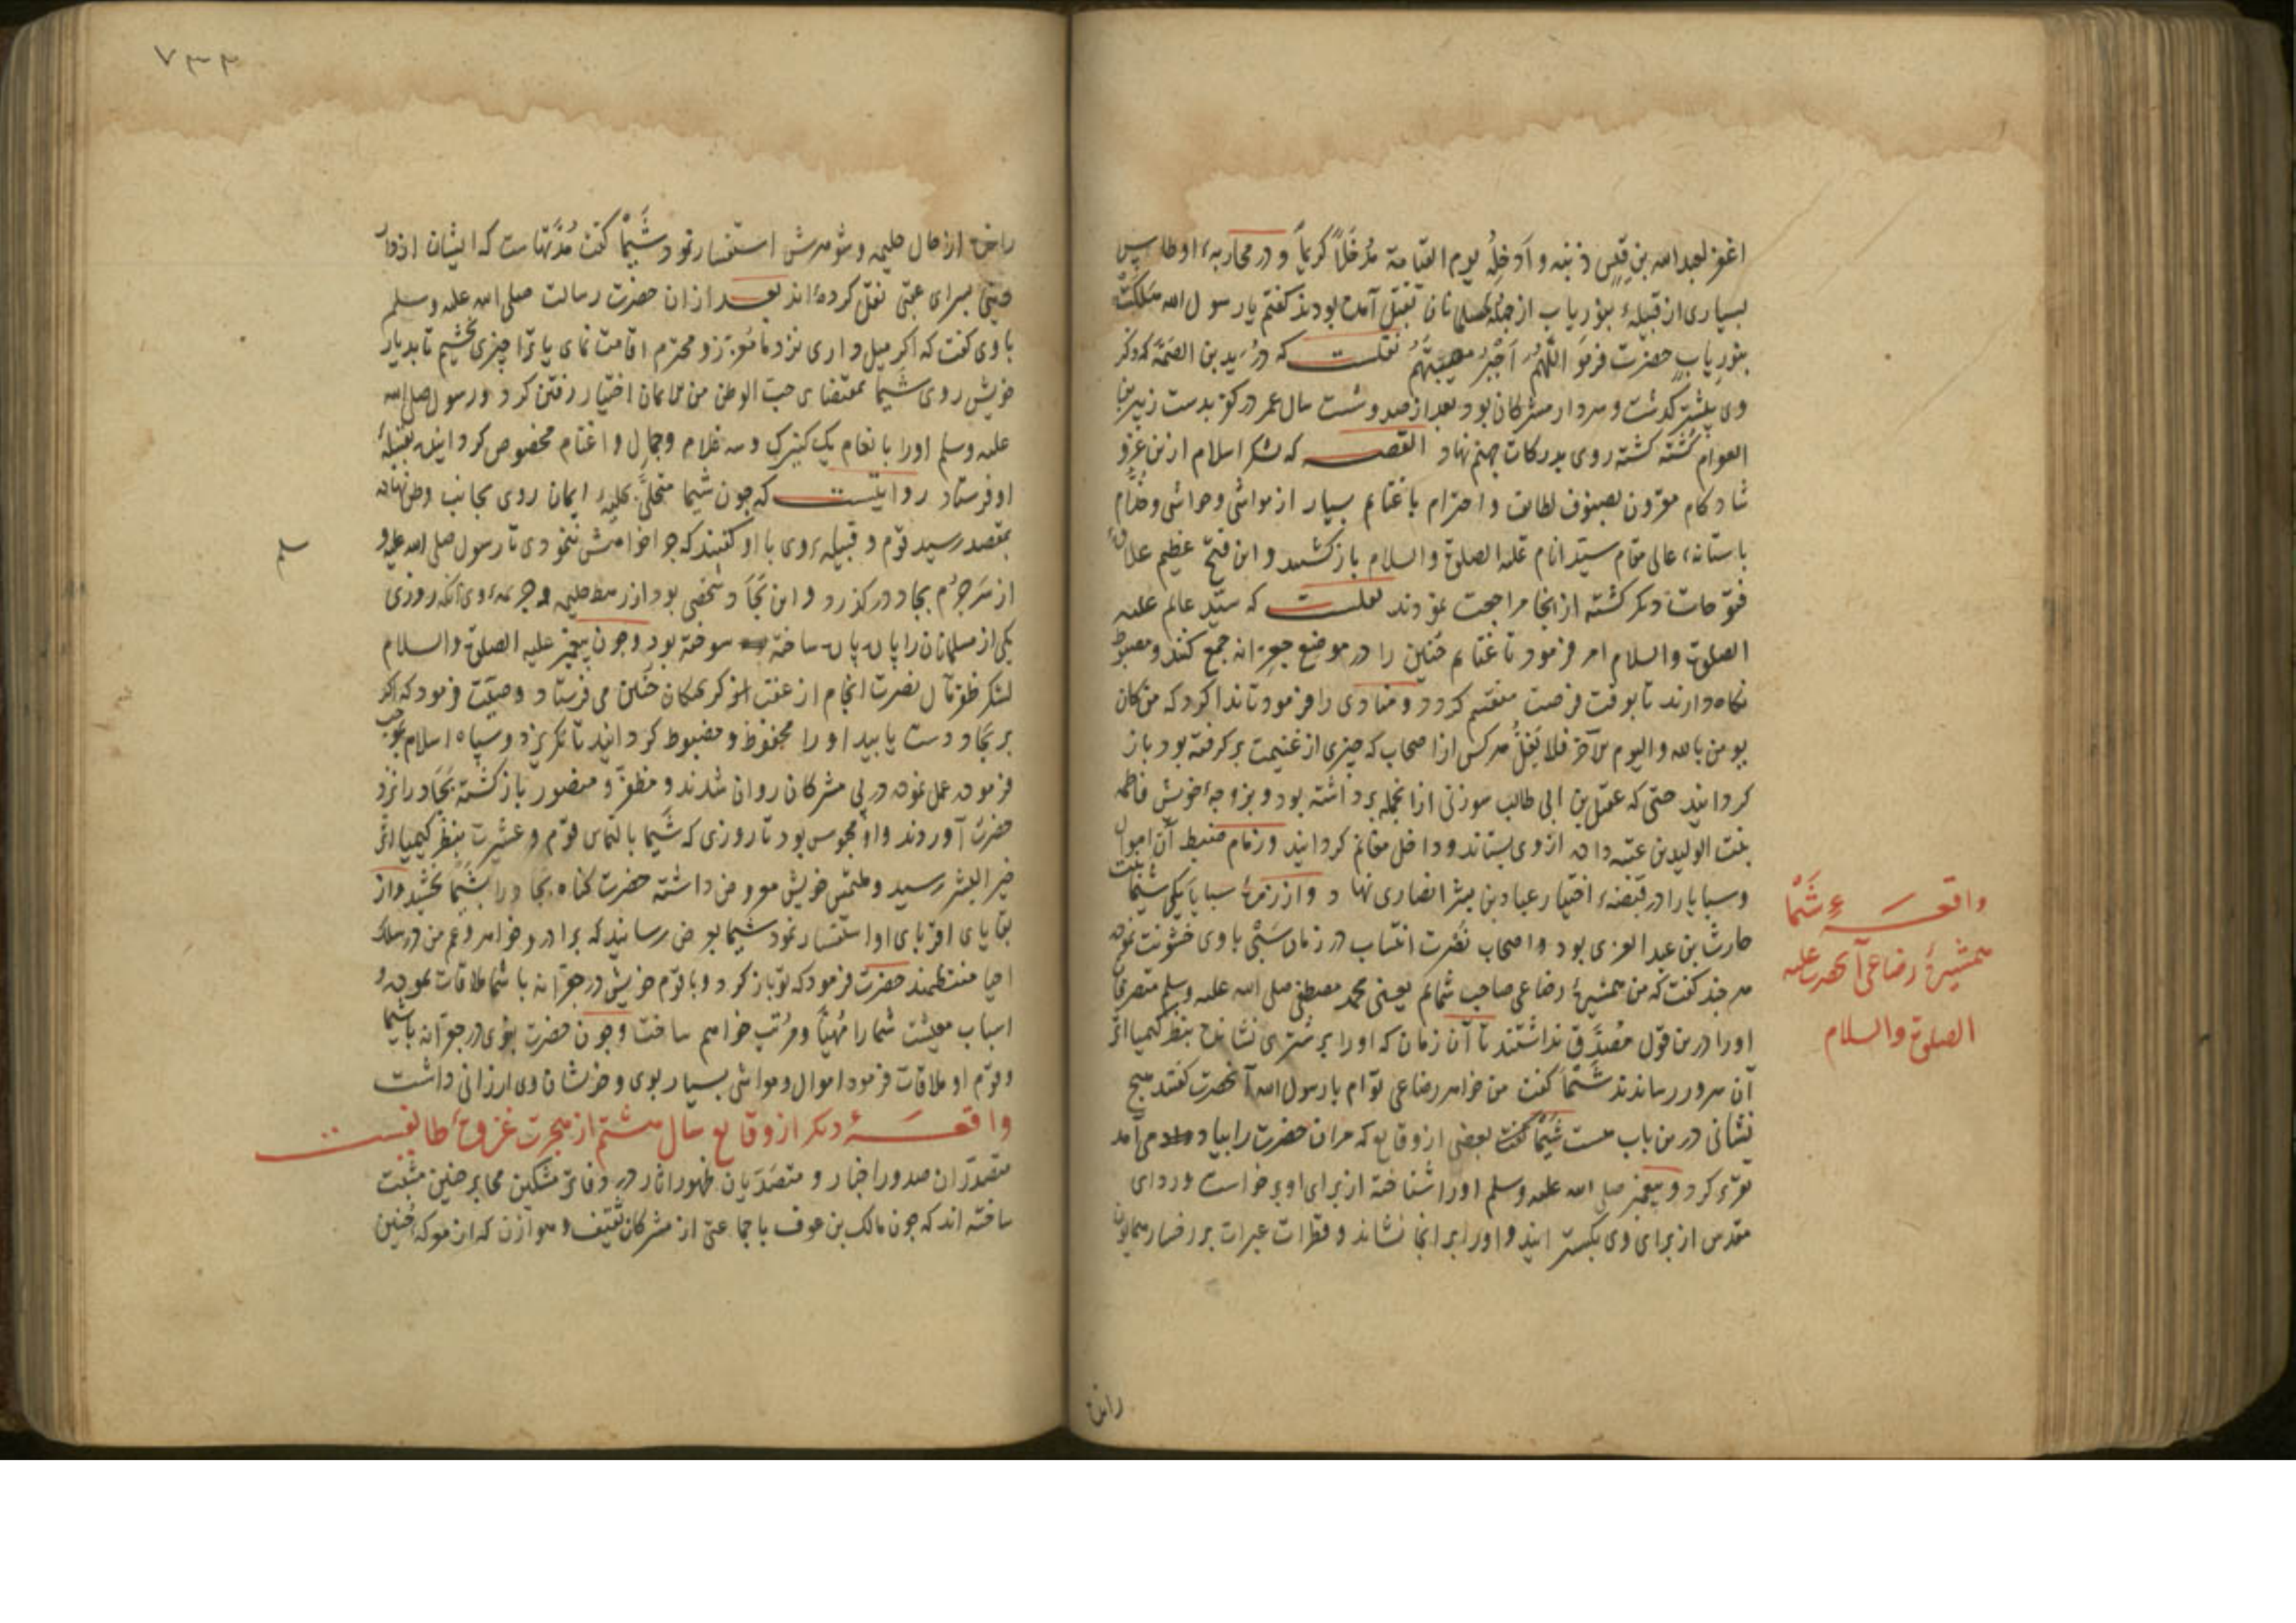 اغفر لعبد الله بن قیس ذنبه و أدخله یوم القیامة مدخلاً کریماً و در محاربهٔ اوطاس
بسیاری از قبیلهٔ بنو ریاب از جمله مسلمانان بقتل آمده بودند گفتم یا رسول الله هلکت
بنو ریاب حضرت فرمود اللهم أجبر مصیبتهم نقلست که درید بن الصمة که ذکر
وی پیشتر گذشت و سردار مشرکان بود بعد از صد و شست سال عمر در کو بدست زبیر بن
العوام کشته گشته روی بدرکات جهنم نهاد القصه که لشکر اسلام ازین غزو
شادکام مقرون بصنوف لطایف و احترام با غنایم بسیار از مواشی و حواشی و خدام
باستانهٔ عالی مقام سید انام علیه الصلوة والسلام باز کشیدند و این فتح عظیم علاوهٔ
فتوحات دیگر گشته از انجا مراجعت نمودند نقلست که سید عالم علیه
الصلوة والسلام امر فرمود تا غنایم حنین را در موضع جعرانه جمع کنند و مضبوط
نگاه دارند تا بوقت فرصت منقسم گردد و منادی را فرمود تا ندا کرد که من کان
یومن بالله والیوم الآخر فلا یغل هر کس از اصحاب که چیزی از غنیمت بر گرفته بود باز
گردانید حتی که عقیل بن ابی طالب سوزنی از انجمله برداشته بود و بزوجهٔ خویش فاطمه
بنت الولید بن عتبه داده از وی بستاند و داخل مغانم گردانید و زمام ضبط آن اموال
وسبایا را در قبضهٔ اختیار عباد بن بشر انصاری نهاد و از زمرهٔ سبایا یکی شیما بنت
حارث بن عبد العزی بود و اصحاب نصرت انتساب در زمان سبی با وی خشونت نموده
هر چند گفت که من همشیرهٔ رضاعی صاحب شمایم یعنی محمد مصطفی صلی الله علیه وسلم متعرفان
او را درین قول مصدق نداشتند تا آن زمان که او را بر شتری نشانده بنظر کیمیا اثر
آن سرور رساندند شیما گفت من خواهر رضاعی توام یا رسول الله آنحضرت گفتند هیچ
نشانی درین باب هست شیما گفت بعضی از وقایع که مر آن حضرت را بیاد می آمد
تقریر کرد و پیغمبر صلی الله علیه وسلم او را شناخته از برای او بر خواست و ردای
مقدس از برای وی بگسترانید و او را بر انجا نشاند و قطرات عبرات بر رخسار همایون
واقعهٔ شیما
همشیرهٔ رضاعی آنحضرت علیه
الصلوة والسلام
رانده
۷۳۴
رانده از حال حلیمه و شوهرش استفسار نمود شیما گفت مدتهاست که ایشان از دار
بسرای عقبی نقل کرده‌اند بعد از ان حضرت رسالت صلی الله علیه وسلم
با وی گفت که اگر میل داری نزد ما معزز و محترم اقامت نمای یا ترا چیزی بخشیم تا بدیار
خویش روی شیما بمقتضای حب الوطن من الایمان اختیار رفتن کرد و رسول صلی الله
علیه وسلم او را بانعام یک کنیزک و سه غلام و جمال و اغنام مخصوص گردانیده بقبیلهٔ
او فرستاد روایتست که چون شیما متحلی بحلیهٔ ایمان روی بجانب وطن نهاده
بمقصد رسید قوم و قبیلهٔ وی با او گفتند که چرا خواهش ننمودی تا رسول صلی الله علیه و
سلم
از سر جرم بجاد درگذرد و این بجاد شخصی بود از رهط حلیمه و جریمهٔ وی آنکه روزی
یکی از مسلمانان را پاره پاره ساخته سوخته بود و چون پیغمبر علیه الصلوة والسلام
لشکر ظفر مآل نصرت انجام از عقب گریختگان حنین می فرستاد وصیت فرمود که اگر
بر بجاد دست یابید او را محفوظ و مضبوط گردانید تا نگریزد و سپاه اسلام بموجب
فرموده عمل نموده در پی مشرکان روان شدند و مظفر و منصور باز گشته بجاد را نزد
حضرت آوردند و او محبوس بود تا روزی که شیما بالتماس قوم و عشیرت بنظر کیمیا اثر
خیر البشر رسید و ملتمس خویش معروض داشته حضرت گناه بجاد را بشیما بخشید و از
بقایای اقربای او استفسار نمود شیما بعرض رسانید که برادر و خواهر و عم من در سلک
احیا منتظمند حضرت فرمود که تو باز گرد و با قوم خویش در جعرانه با شما ملاقات نموده و
اسباب معیشت شما را مهیا و مرتب خواهم ساخت و چون حضرت نبوی در جعرانه با شیما
و قوم او ملاقات فرمود اموال و مواشی بسیار بوی و خویشان وی ارزانی داشت
واقعهٔ دیگر از وقایع سال هشتم از هجرت غزوهٔ طایفست
متصدران صدور اخبار و متصدیان ظهور آثار در دفاتر مشکین محابر چنین مثبت
ساخته اند که چون مالک بن عوف با جماعتی از مشرکان ثقیف و هوازن که از معرکهٔ حنین